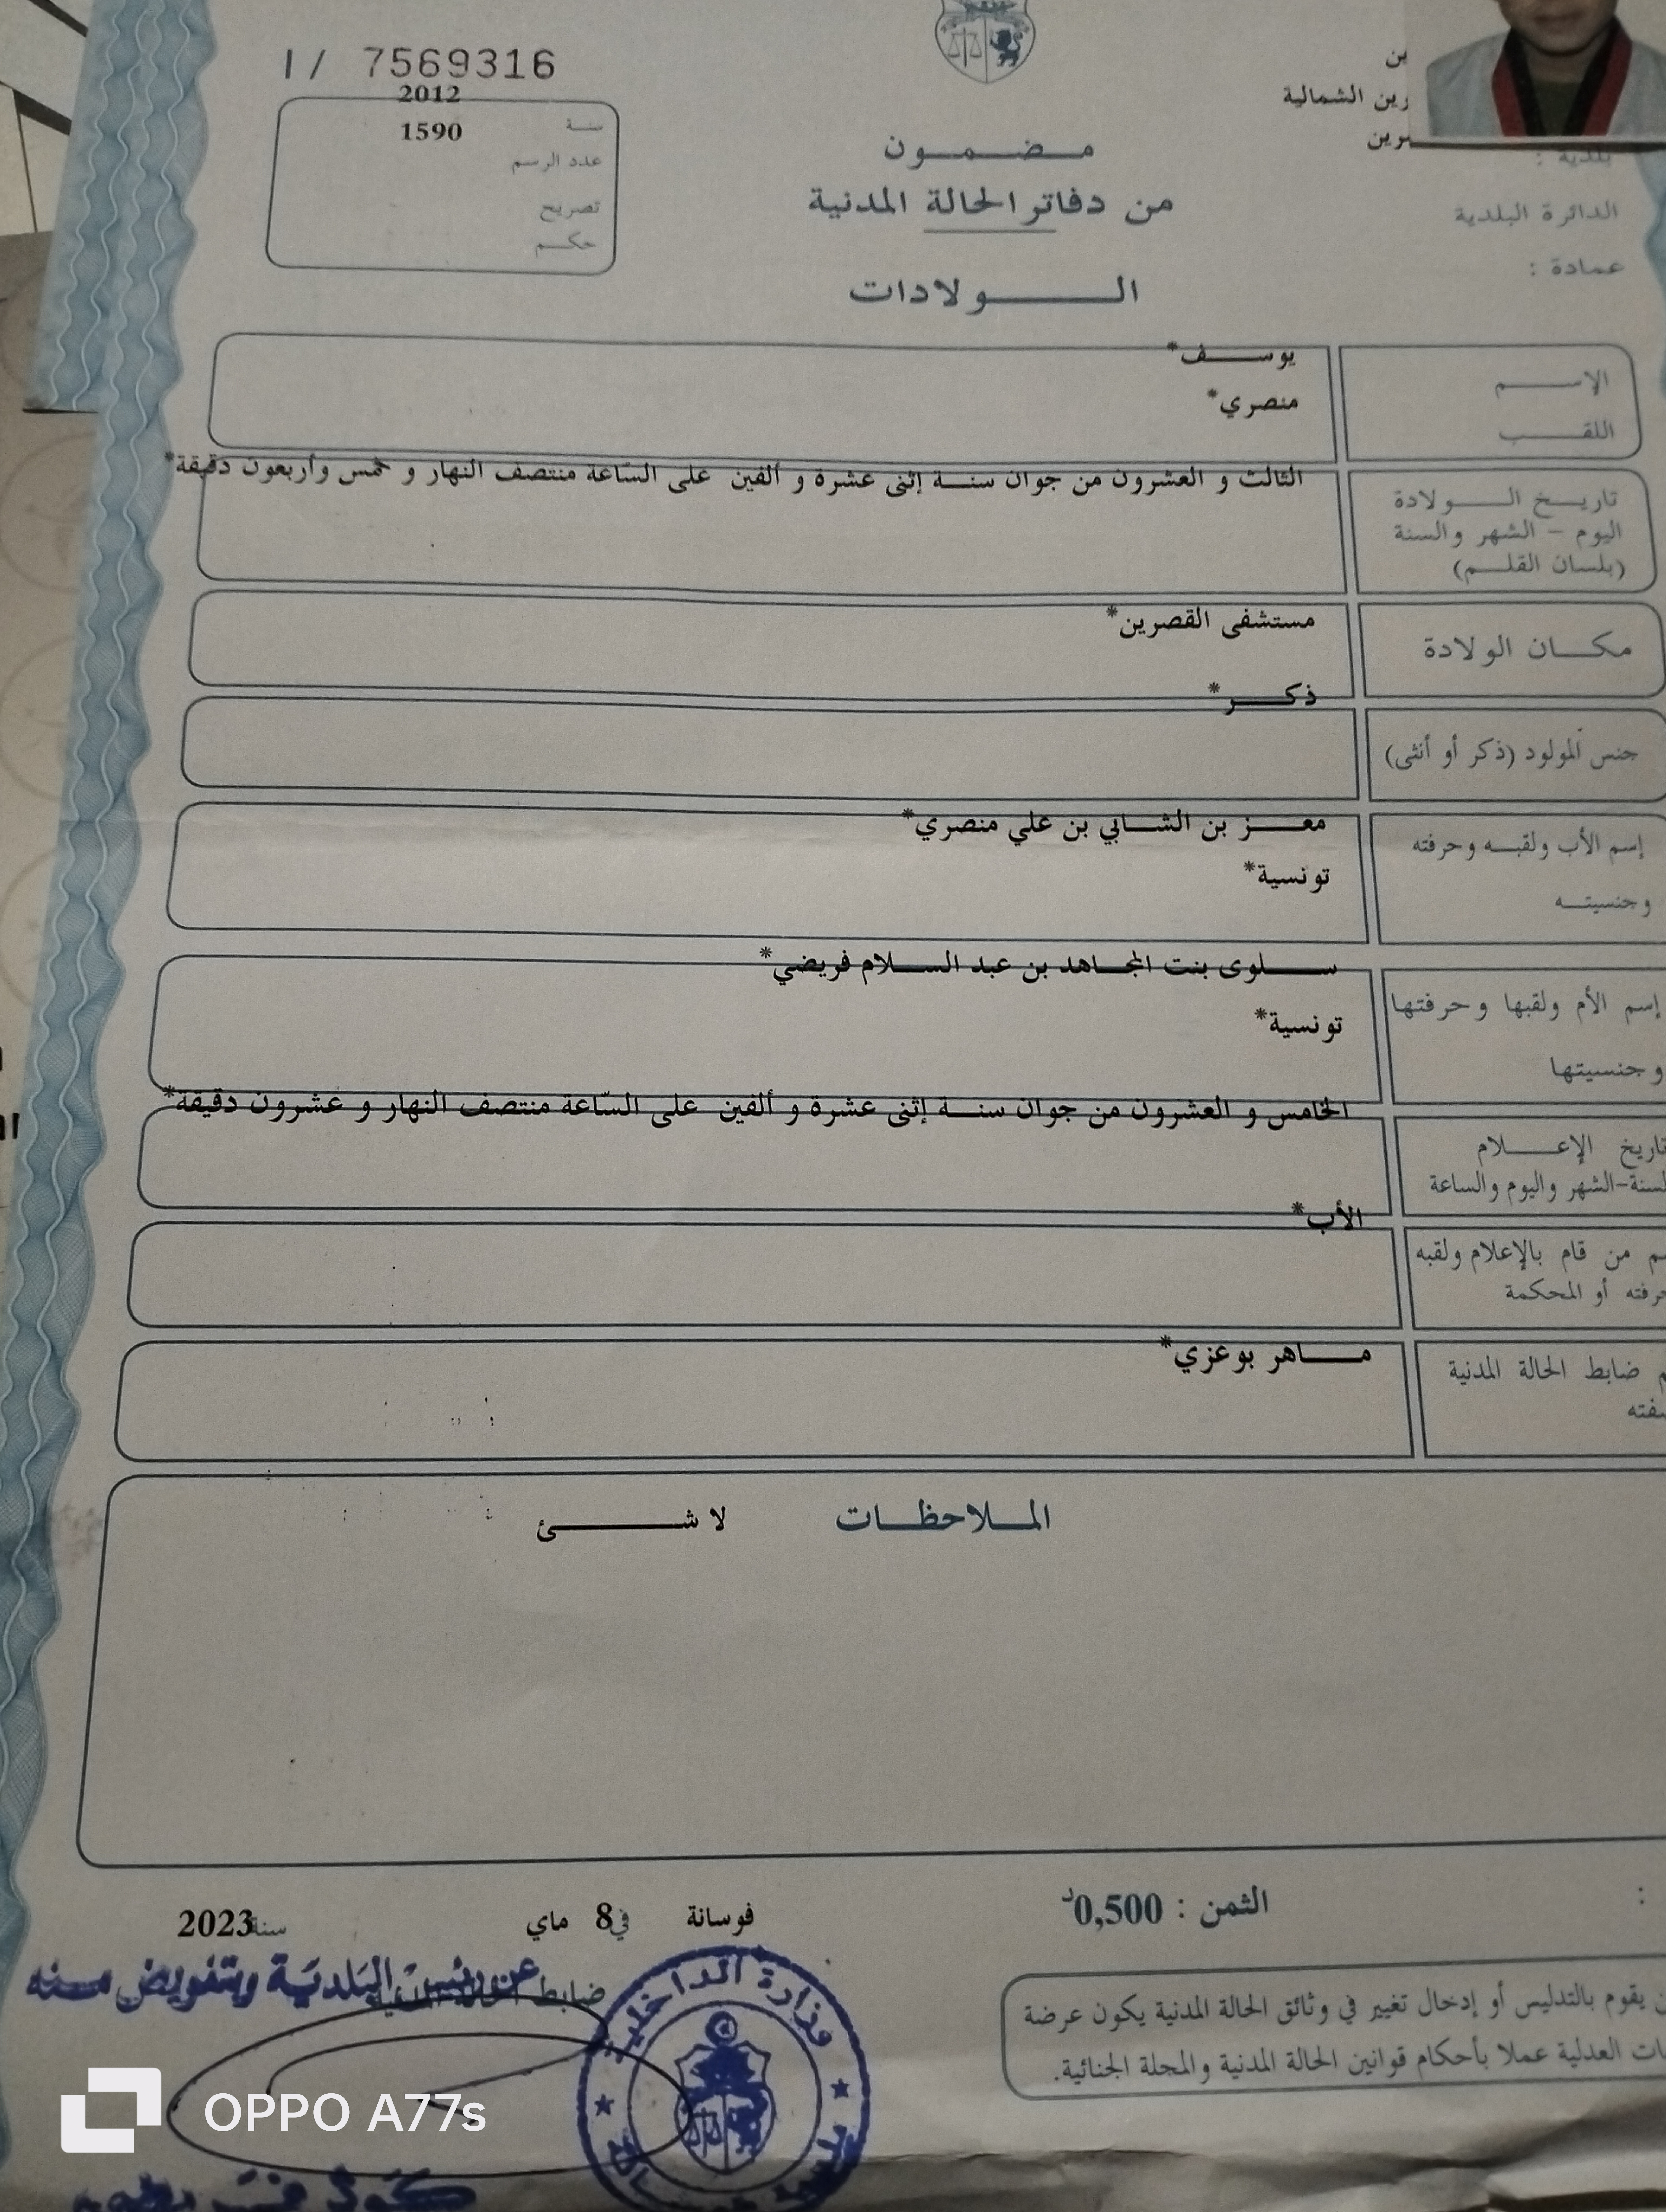 1/ 7569316
2012
سنة
1590
عدد الرسم
تصريح
حكم
رين الشمالية
مضمون
من دفاتر الحالة المدنية
الولادات
بلدية :
الدائرة البلدية
عمادة :
الاسم يوسف*
اللقب منصري*
تاريخ الولادة
اليوم - الشهر والسنة
(بلسان القلم)
الثالث و العشرون من جوان سنة إثنى عشرة و ألفين على السّاعة منتصف النهار و خمس وأربعون دقيقة*
مكان الولادة مستشفى القصرين*
جنس المولود (ذكر أو أنثى) ذكر*
إسم الأب ولقبه وحرفته معز بن الشابي بن علي منصري*
وجنسيته تونسية*
إسم الأم ولقبها وحرفتها سلوى بنت المجاهد بن عبد السلام فريضي*
وجنسيتها تونسية*
تاريخ الإعلام
السنة-الشهر واليوم والساعة
الخامس و العشرون من جوان سنة إثنى عشرة و ألفين على السّاعة منتصف النهار و عشرون دقيقة*
من قام بالإعلام ولقبه الأب*
أو المحكمة
ضابط الحالة المدنية ماهر بوعزي*
الملاحظات لا شئ
الثمن : 0,500د
فوسانة في 8 ماي سنة 2023
ضابط الحالة المدنية
عن رئيس البلدية وبتفويض منه
وزارة الداخلية
يقوم بالتدليس أو إدخال تغيير في وثائق الحالة المدنية يكون عرضة
العدلية عملا بأحكام قوانين الحالة المدنية والمجلة الجنائية.
OPPO A77s